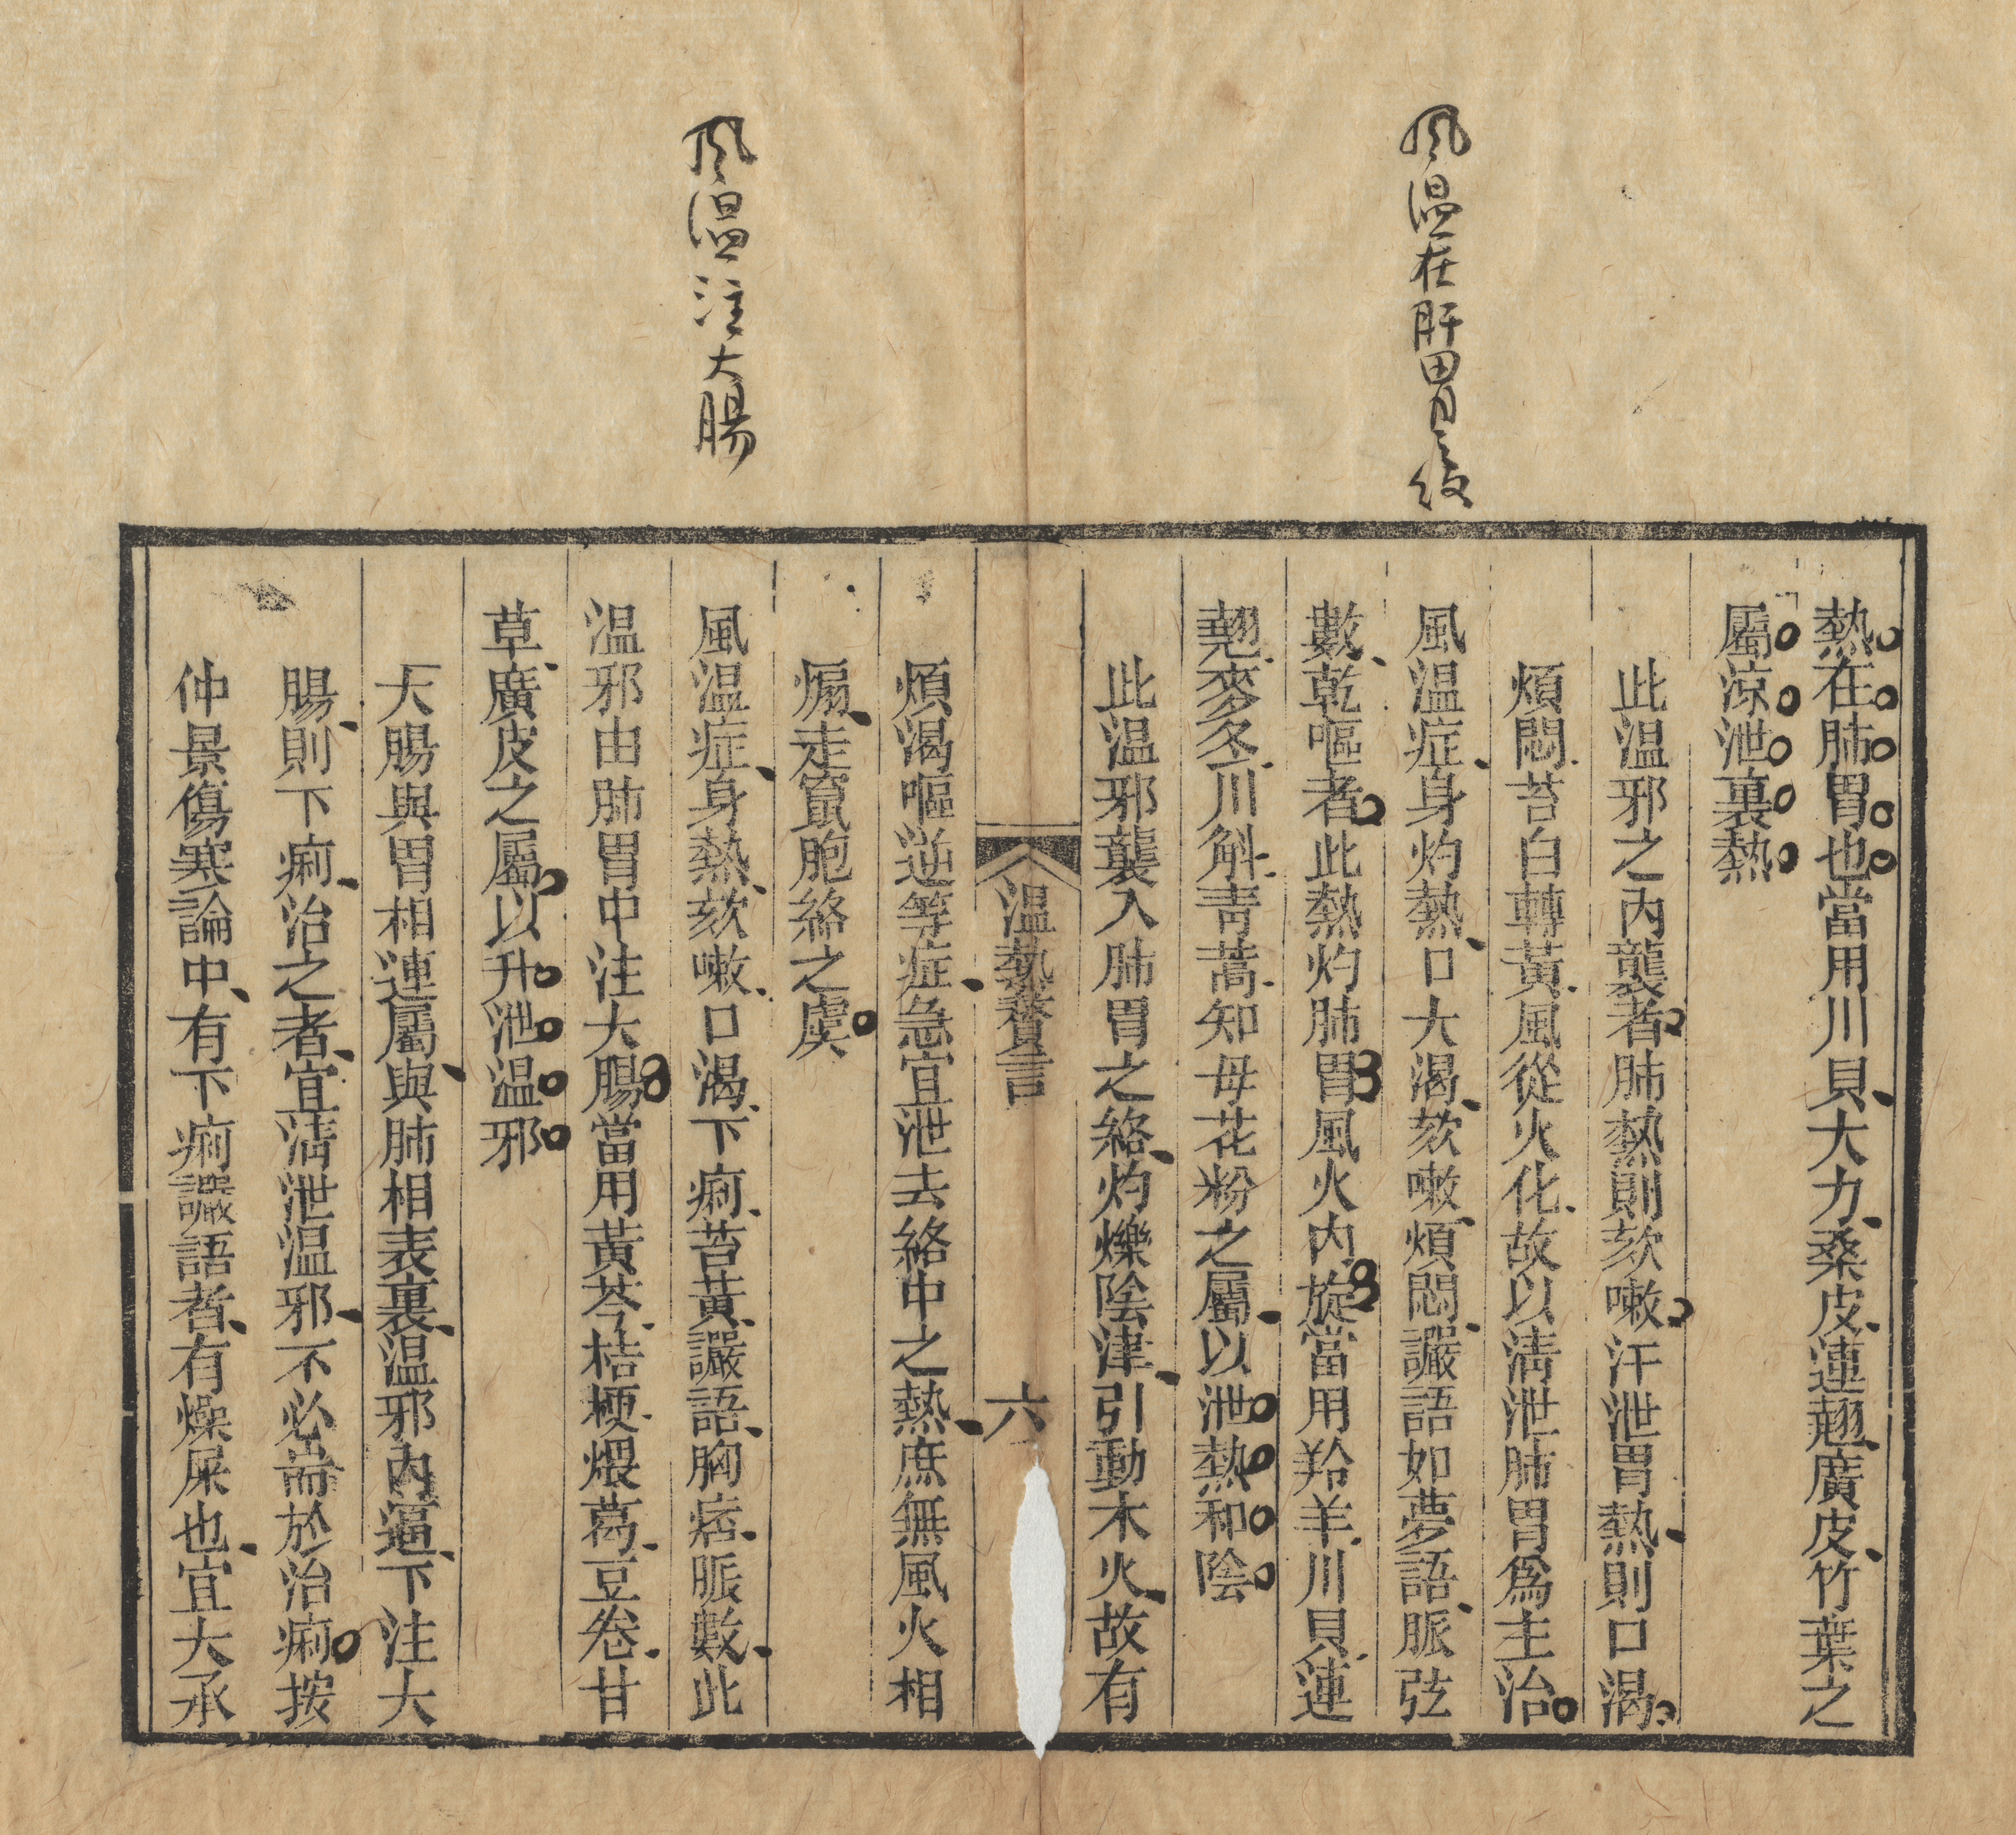 風温在肝胃之絞
風温注大腸
熱在肺胃也當用川貝大力桑皮連翹廣皮竹葉之
屬涼泄裏熱
此温邪之內襲者肺熱則欬嗽汗泄胃熱則口渴
煩悶苔白轉黃風從火化故以清泄肺胃爲主治
風温症身灼熱口大渴欬嗽煩悶讝語如夢語脈弦
數乾嘔者此熱灼肺胃風火內旋當用羚羊川貝連
翹麥冬川斛青蒿知母花粉之屬以泄熱和陰
此温邪襲入肺胃之絡灼爍陰津引動木火故有
温熱贅言
六
煩渴嘔逆等症急宜泄去絡中之熱庶無風火相
煽走竄胞絡之虞
風温症身熱欬嗽口渴下痢苔黃讝語胸痞脈數此
温邪由肺胃中注大腸當用黃芩桔梗煨葛豆卷甘
草廣皮之屬以升泄温邪
大腸與胃相連屬與肺相表裏温邪內逼下注大
腸則下痢治之者宜清泄温邪不必耑於治痢按
仲景傷寒論中有下痢讝語者有燥屎也宜大承